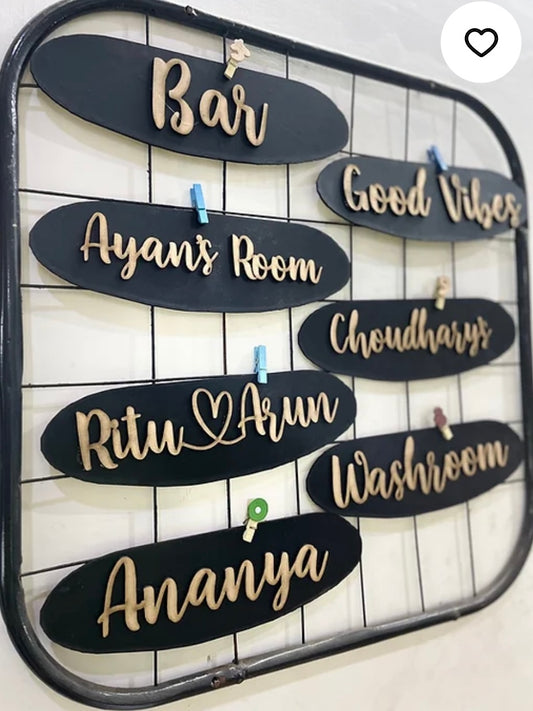 Bar
Good Vibes
Ayan's Room
Choudhary's
Ritu Arun
Washroom
Ananya